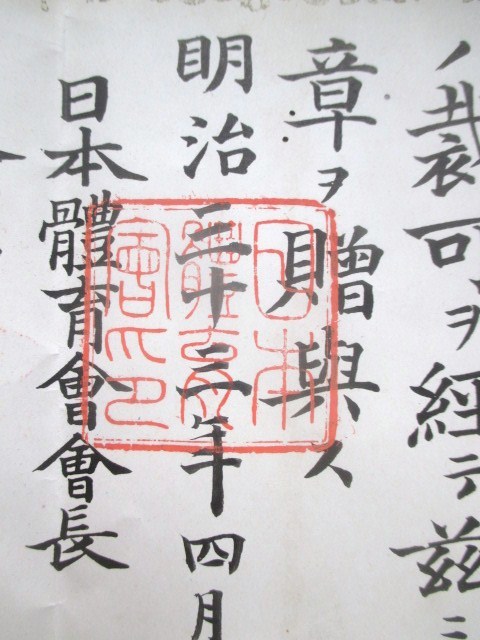 ノ裁可ヲ經テ茲ニ
章ヲ贈與ス
明治三十三年四月
日本體育會會長
日本
體育
會印